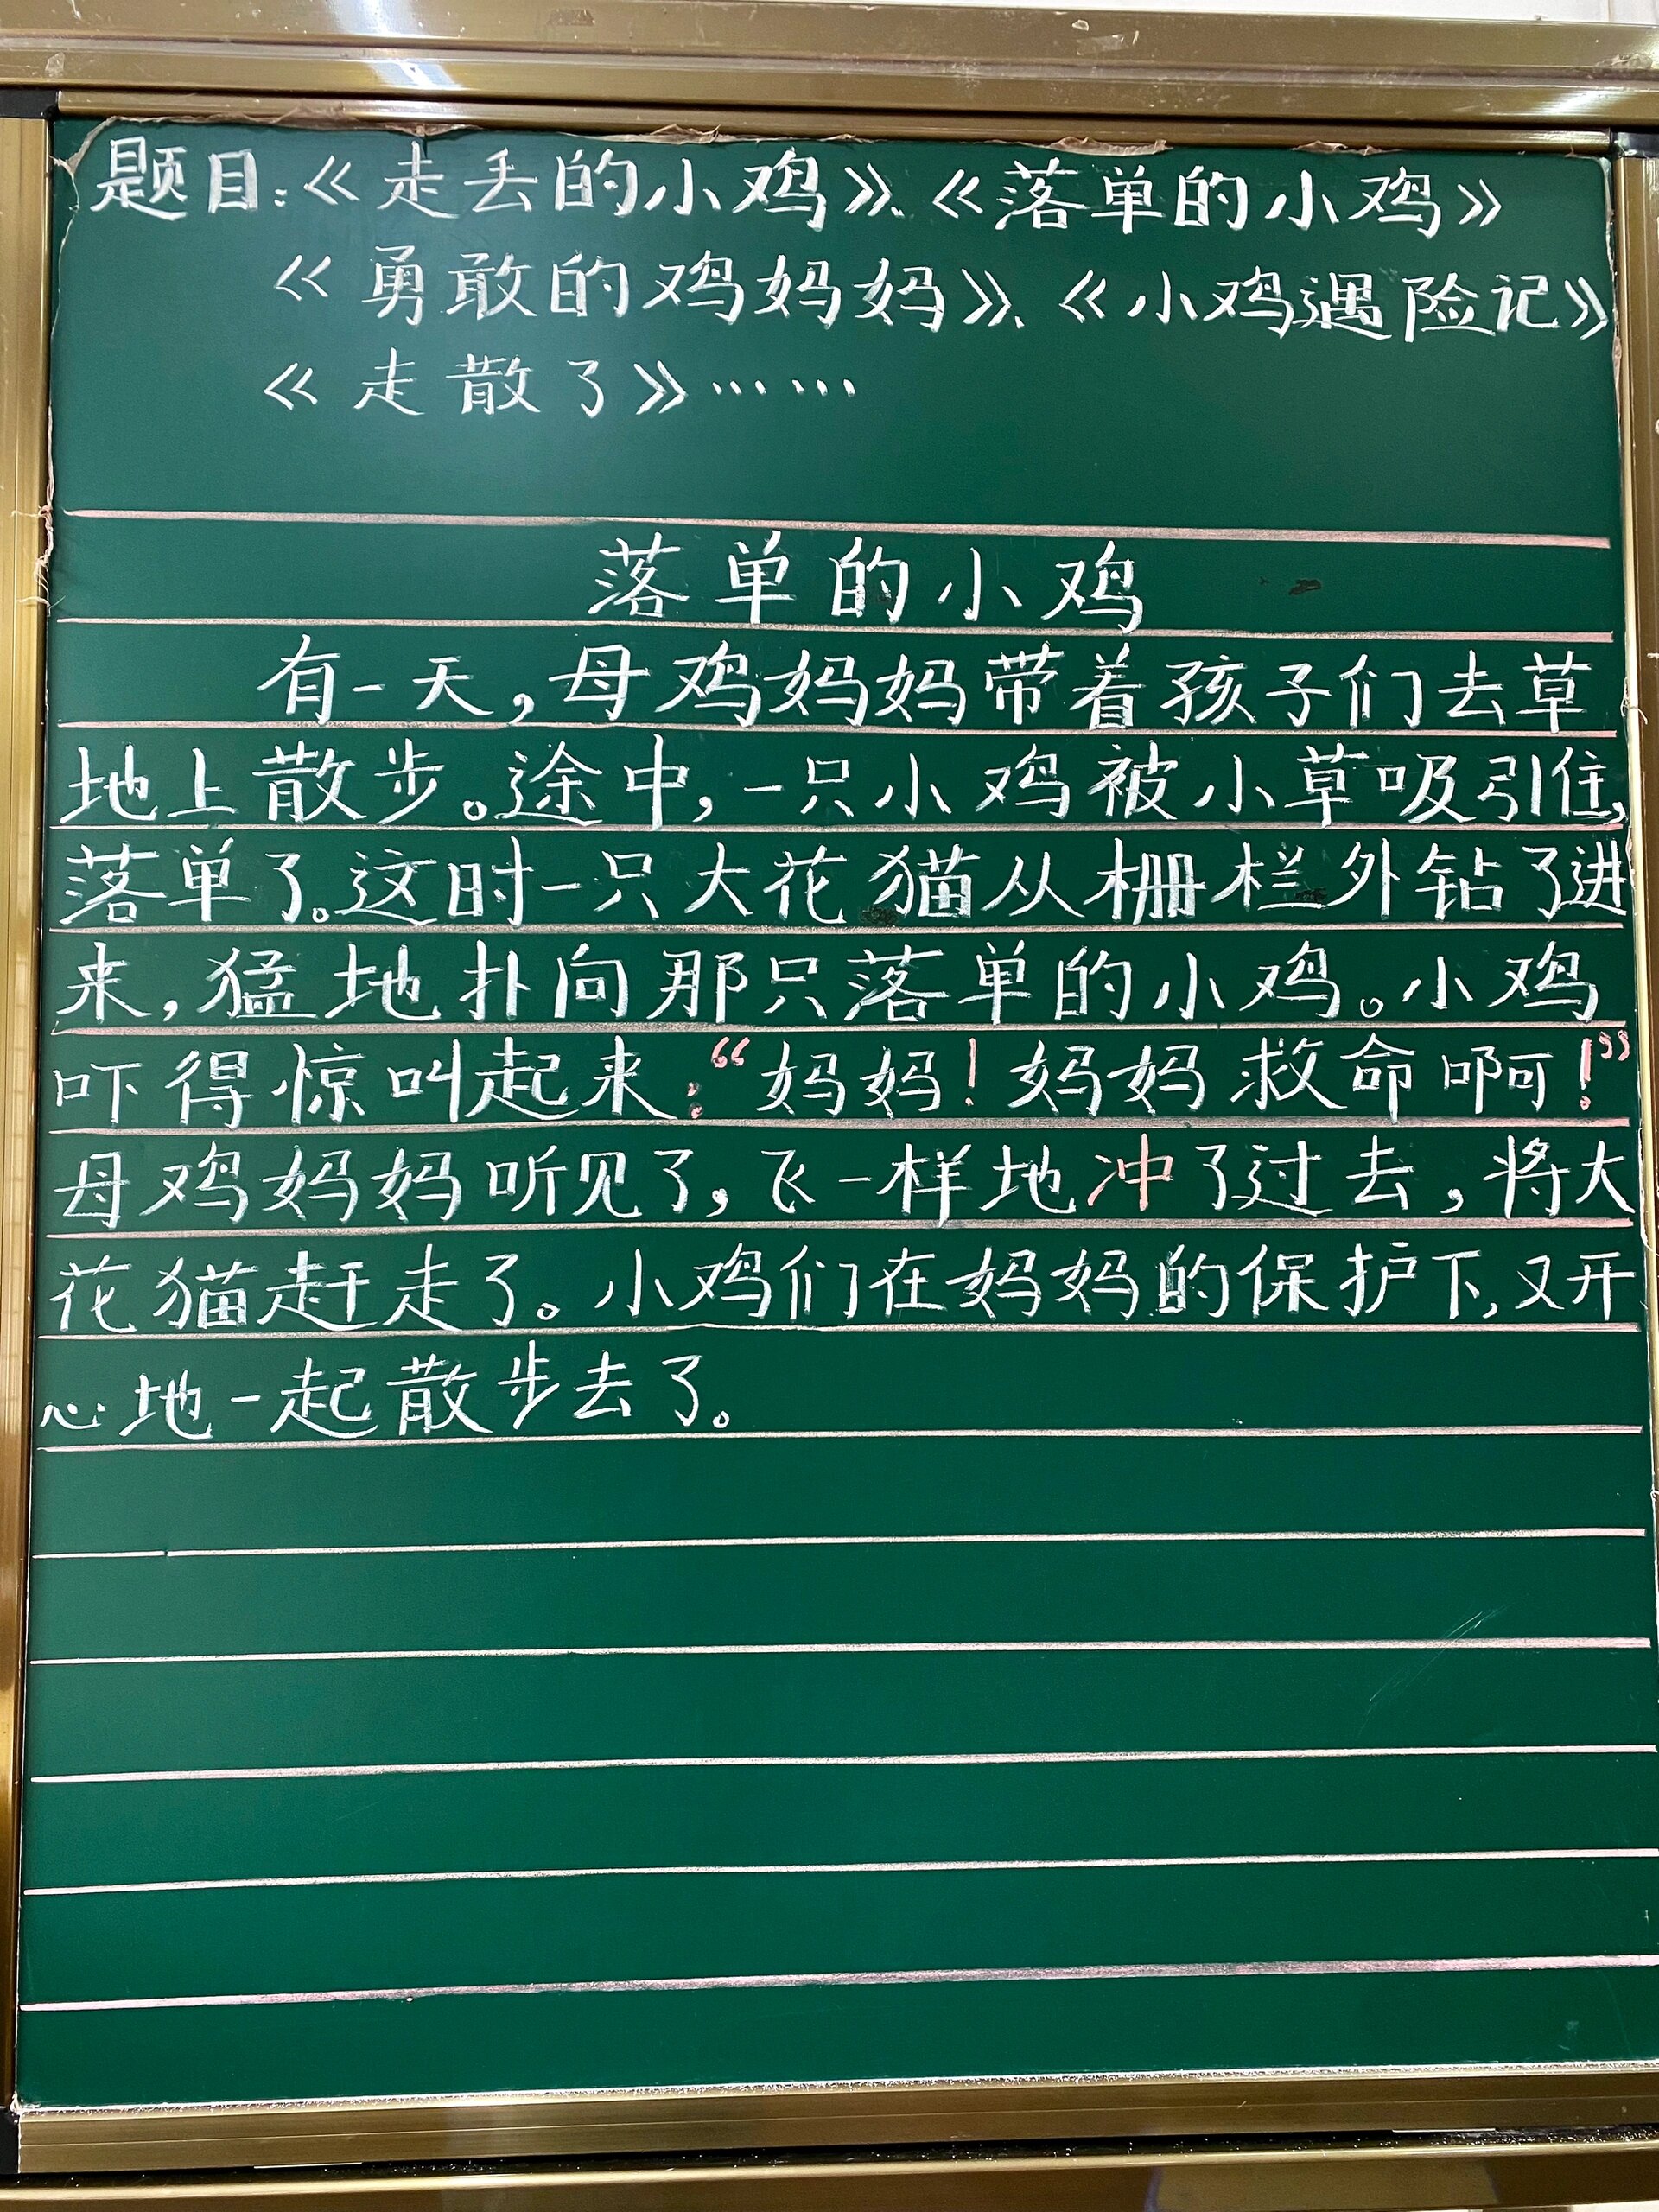 题目:《走丢的小鸡》、《落单的小鸡》
《勇敢的鸡妈妈》、《小鸡遇险记》
《走散了》……
落单的小鸡
有一天,母鸡妈妈带着孩子们去草
地上散步。途中,一只小鸡被小草吸引住,
落单了。这时一只大花猫从栅栏外钻了进
来,猛地扑向那只落单的小鸡。小鸡
吓得惊叫起来:“妈妈!妈妈救命啊!”
母鸡妈妈听见了,飞一样地冲了过去,将大
花猫赶走了。小鸡们在妈妈的保护下,又开
心地一起散步去了。